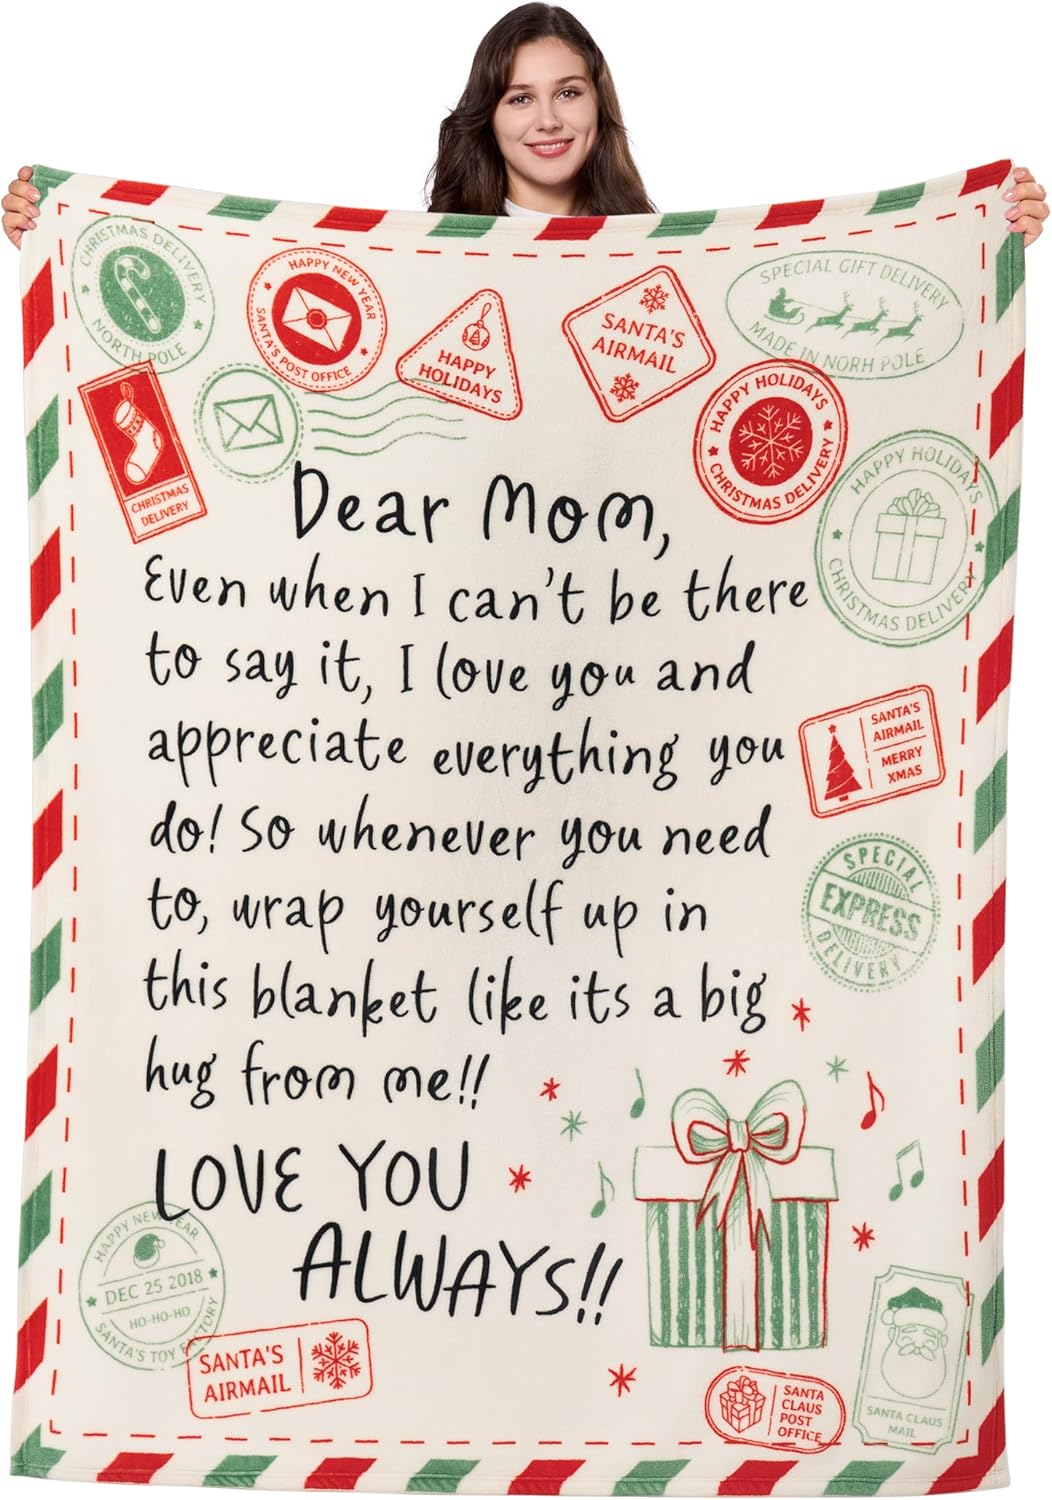 CHRISTMAS DELIVERY
NORTH POLE
HAPPY NEW YEAR
SANTA'S POST OFFICE
HAPPY
HOLIDAYS
SANTA'S
AIRMAIL
SPECIAL GIFT DELIVERY
MADE IN NORH POLE
CHRISTMAS
DELIVERY
HAPPY HOLIDAYS
CHRISTMAS DELIVERY
HAPPY HOLIDAYS
CHRISTMAS DELIVERY
Dear Mom,
Even when I can't be there
to say it, I love you and
appreciate everything you
do! So whenever you need
to, wrap yourself up in
this blanket like its a big
hug from me!!
LOVE YOU
ALWAYS!!
SANTA'S
AIRMAIL
MERRY
XMAS
SPECIAL
EXPRESS
DELIVERY
HAPPY NEW YEAR
DEC 25 2018
HO-HO-HO
SANTA'S TOY FACTORY
SANTA'S
AIRMAIL
SANTA
CLAUS
POST
OFFICE
SANTA CLAUS
MAIL